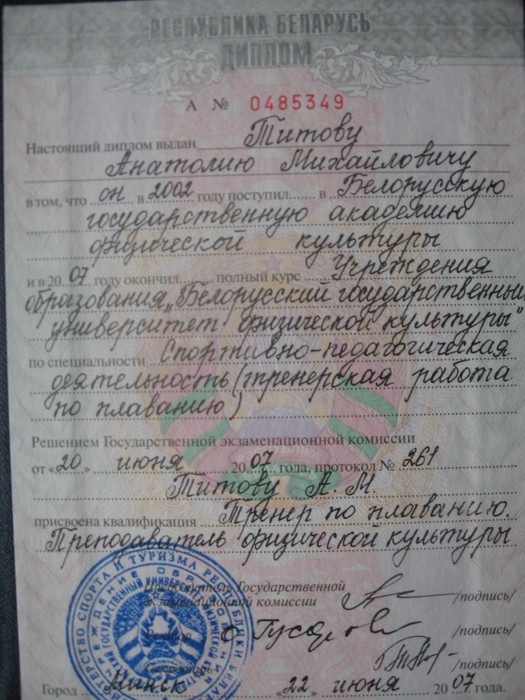 РЕСПУБЛИКА БЕЛАРУСЬ
ДИПЛОМ
А № 0485349
Настоящий диплом выдан Титову
Анатолию Михайловичу
в том, что он в 2002 году поступил в Белорусскую
государственную академию
физической культуры
и в 2007 году окончил полный курс Учреждения
образования „Белорусский государственный
университет физической культуры"
по специальности Спортивно-педагогическая
деятельность (тренерская работа
по плаванию)
Решением Государственной экзаменационной комиссии
от «20» июня 2007 года, протокол № 261
Титову А. М.
присвоена квалификация Тренер по плаванию.
Преподаватель физической культуры
Государственной
экзаменационной комиссии /подпись/
/подпись/
/подпись/
Город Минск «22» июня 2007.